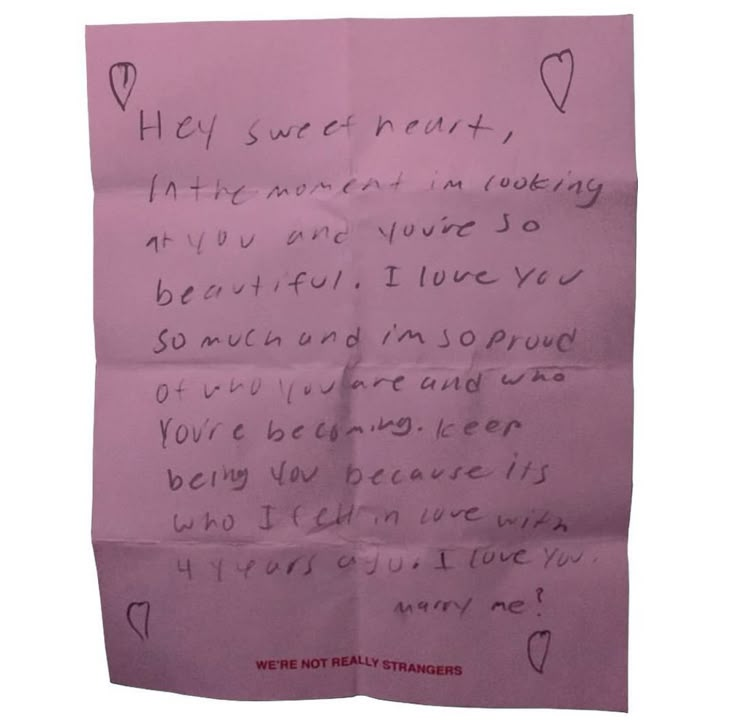 Hey sweet heart,
In the moment im looking
at you and you're so
beautiful. I love you
so much and im so proud
of who you are and who
you're becoming. keep
being you because its
who I fell in love with
4 years ago. I love you.
marry me?
WE'RE NOT REALLY STRANGERS